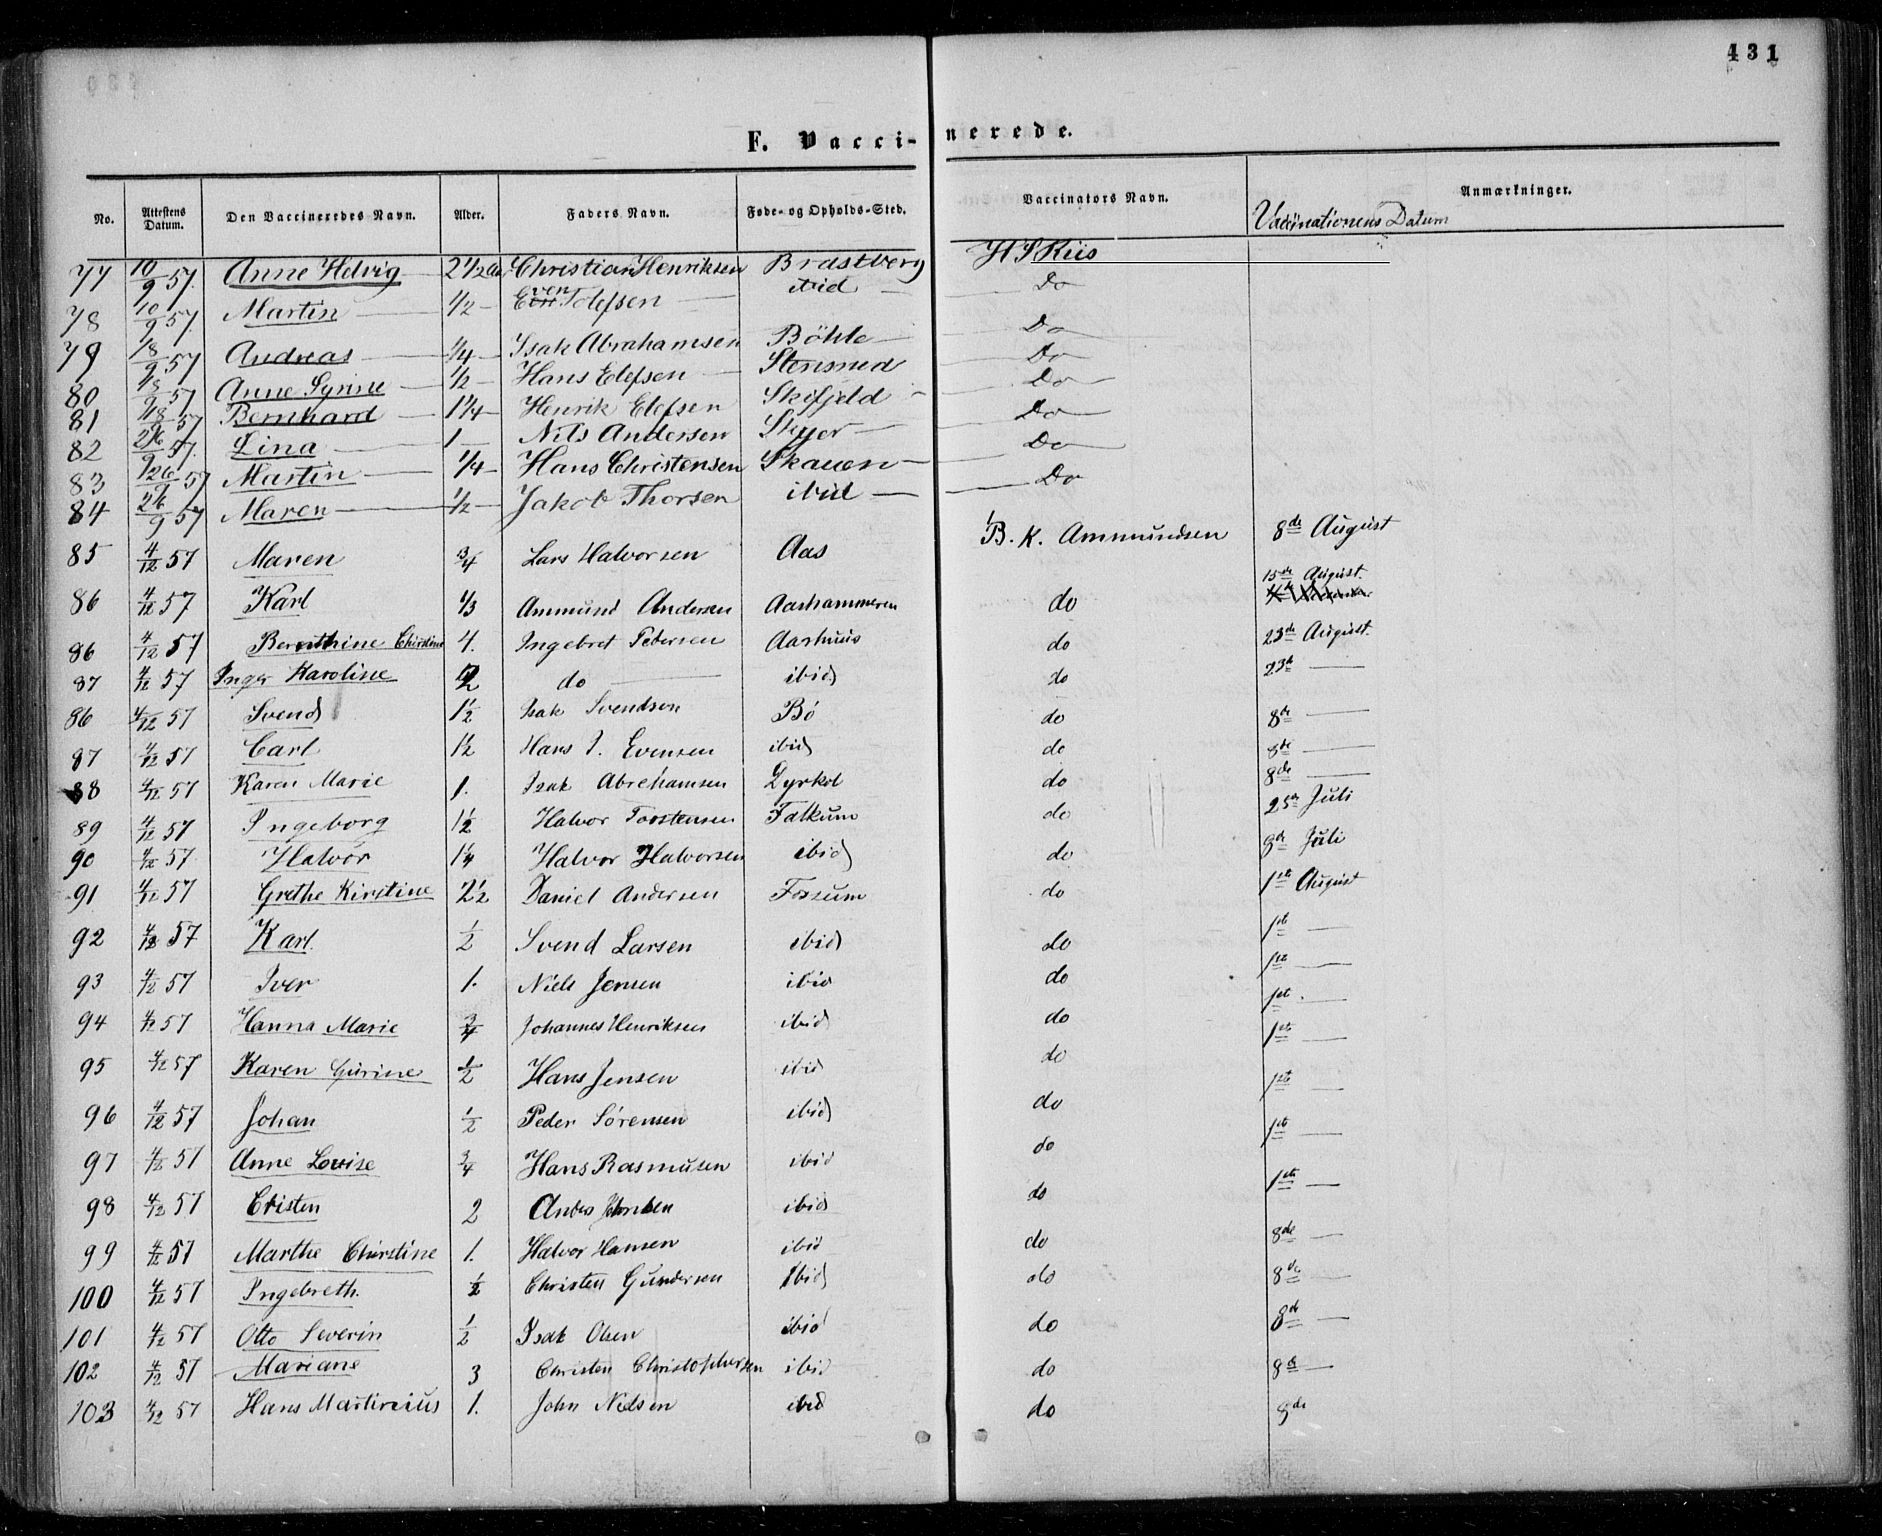 431
F. Vaccinerede.
No. Attestens Datum. Den Vaccineredes Navn. Alder. Faders Navn. Føde- og Opholds-Sted. Vaccinators Navn. Anmærkninger.
Vaccinationens Datum
77 10/9 57. Anne Helvig 2 1/2 Christian Henriksen Brastberg H S Riis
78 10/9 57 Martin 1/2 Even Tolefsen ibid Do
79 18/9 57 Andreas 1/4 Isak Abrahamsen Böhle Do
80 18/9 57 Anne Synne 1/2 Hans Elefsen Stensrud Do
81 18/9 57 Bernhard 1 1/4 Henrik Elefsen Skifjeld Do
82 26/9 57. Lina 1 Nils Andersen Skyer Do
83 26/9 57 Martin 1/4 Hans Christensen Skauen Do
84 26/9 57 Maren 1/2 Jakob Thorsen ibid Do
85 4/12 57 Maren 3/4 Lars Halvorsen Aas B. K. Ammundsen 8de August
86 4/12 57 Karl 1/3 Ammund Andersen Aashammeren do 15de August.
86 4/12 57 Bernthine Chirstine 4. Ingebret Pedersen Aashuus do 23de August.
87 4/12 57 Inger Karoline 2 do ibid do 23de
86 4/12 57 Svend 1 1/2 Isak Svendsen Bó do 8de
87 4/12 57 Carl 1 1/2 Hans J. Evensen ibid do 8de
88 4/12 57 Karen Marie 1. Isak Abrehamsen Dyrkol do 8de
89 4/12 57 Ingeborg 1 1/2 Halvor Torstensen Falkum do 25de Juli
90 4/12 57. Halvór 1 1/4 Halvor Halvorsen ibid do 8de Juli
91 4/12 57 Grethe Kirstine 2 1/2 Daniel Andersen Fossum do 1ste August
92 4/12 57 Karl. 1/2 Svend Larsen ibid do 1ste
93 4/12 57 Iver 1. Niels Jensen ibid do 1ste
94 4/12 57 Hanna Marie 3/4 Johannes Henriksen ibid do 1ste
95 4/12 57 Karen Gurine 1/2 Hans Jensen ibid do 1ste
96 4/12 57 Johan 1/2 Peder Sórensen ibid do 1ste
97 4/12 57 Anne Lovise 3/4 Hans Rasmusen ibid do 1ste
98 4/12 57 Cristen 2 Anders ibid do 1ste
99 4/12 57 Marthe Chirstine 1. Halvor Hansen ibid do 8de
100 4/12 57 Ingebreth. 1/2 Christen Gundersen Ibid do 8de
101 4/12 57 Otto Severin 1/2 Isak Olsen ibid do 8de
102 4/12 57 Mariane 3 Christen Christophersen ibid do 8de
103 4/12 57 Hans Martinius 1. John Nielsen ibid do 8de